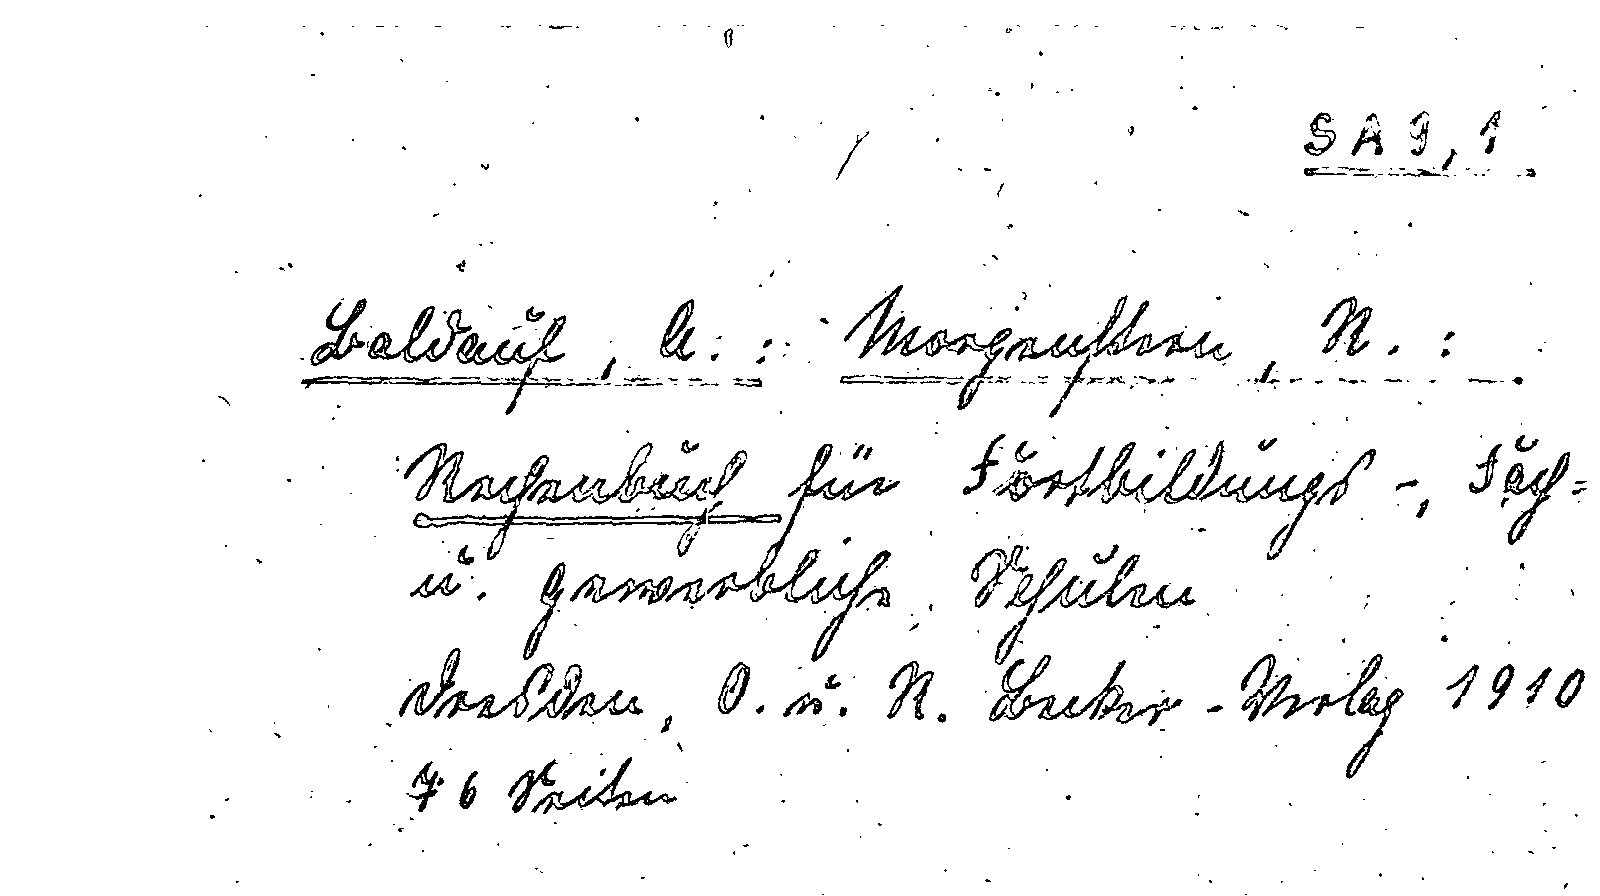 SA 9,1
Baldauf, A.: Morgenstern, R.:
Rechenbuch für Fortbildungs-, Fach=
u. gewerbliche Schulen
Dresden, O. u. R. Becker-Verlag 1910
76 Seiten